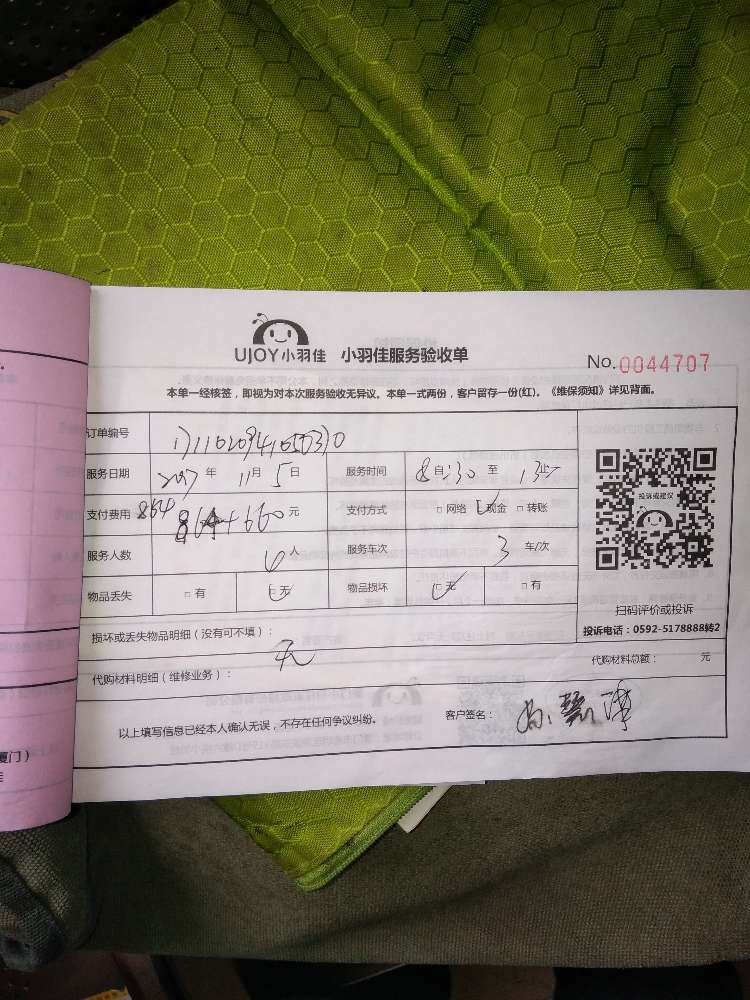 UJOY小羽佳 小羽佳服务验收单
No.0044707
本单一经核签，即视为对本次服务验收无异议。本单一式两份，客户留存一份(红)。《维保须知》详见背面。
订单编号
服务日期 2017年 11月 5日 服务时间 8自:30 至 13止
支付费用 864 864+660元 支付方式 □网络 □现金 □转账
服务人数 6人 服务车次 3车/次
物品丢失 □有 □无 物品损坏 □无 □有
投诉或建议
扫码评价或投诉
投诉电话：0592-5178888转2
损坏或丢失物品明细（没有可不填）：
无
代购材料明细（维修业务）： 代购材料总额： 元
以上填写信息已经本人确认无误，不存在任何争议纠纷。 客户签名：
厦门）